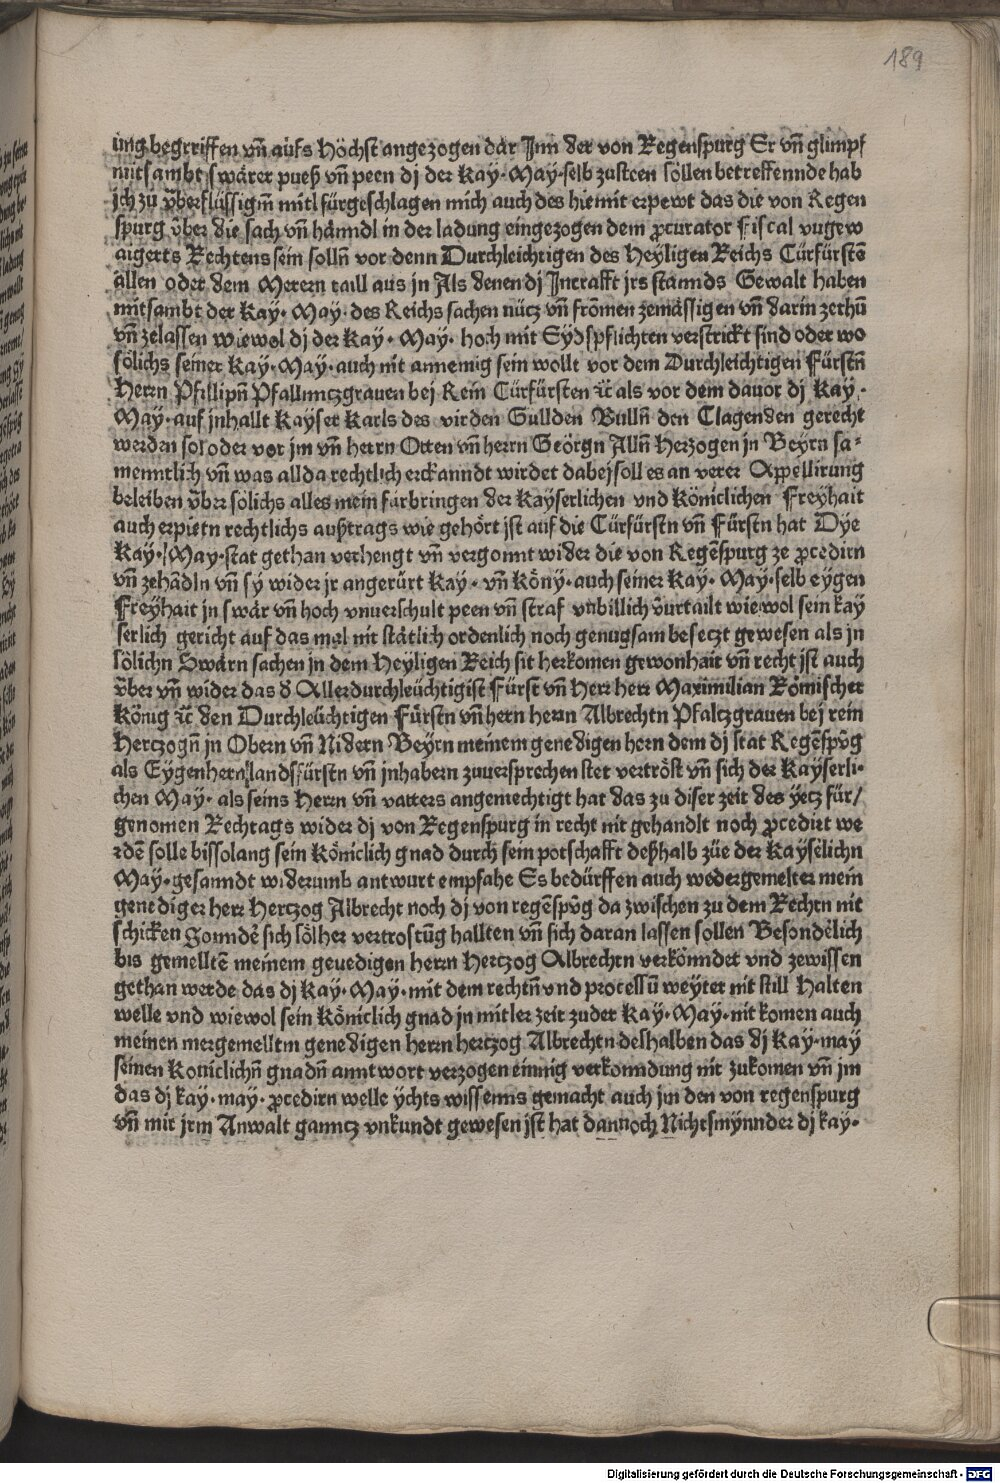 189
ung begrriffen vñ aufs Höchst angezogen dar Jnn der von Regenspurg Er vñ glimpf
mitsambt swärer pueß vñ peen dj der Kaÿ· Maÿ·selb zusteen söllen betreffennde hab
jch zu v̈berflüssigm̄ mitl fürgeschlagen mich auch des hiemit erpewt das die von Regen
spurg v̈ber die sach vñ hänndl in der ladung eingezogen dem ꝓcurator fiscal vngew
aigerts Rechtens sein solln̄ vor denn Durchleichtigen des Heÿligen Reichs Cürfürstē
allen oder dem Merern taill aus jn Als denen dj Jncrafft jrs stannds Gewalt haben
mitsambt der Kaÿ· Maÿ· des Reichs sachen nücz vñ frömen zemässigen vñ darin zethŭ
vñ zelassen wiewol dj der Kaÿ· Maÿ· hoch mit Eÿdspflichten verstrickt sind oder wo
sölichs seiner Kaÿ·Maÿ·auch nit annemig sein wollt vor dem Durchleichtigen Fürstñ
Herrn Pfillipñ Pfallnntzgrauen bej Rein Cürfürsten ꝛc als vor dem dauor dj Kaÿ·
Maÿ·auf jnhallt Kaÿser Karls des virden Gullden Bulln̄ den Clagenden gerecht
werden sol oder vor jm vñ herrn Otten vñ herrn Geörgn Alln̄ Herzogen jn Beÿrn sa-
menntlich vñ was allda rechtlich erckanndt wirdet dabej soll es an verer Appellirung
beleiben v̈ber sölichs alles mein fürbringen der Kaÿserlichen vnd Königlichen Freÿhait
auch erpietn rechtlichs außtrags wie gehört jst auf die Cürfürstn vñ Fürstn hat Dÿe
Kaÿ· Maÿ·stat gethan verhengt vñ vergonnt wider die von Regēspurg ze ꝓcedirn
vñ zehādln vñ sÿ wider jr angerürt Kaÿ· vñ Köny·auch seiner Kaÿ· Maÿ·selb eygen
Freÿhait jn swär vñ hoch vnuerschult peen vñ straf vnbillich v̈urtailt wiewol sein kaÿ
serlich gericht auf das mal nit stätlich ordenlich noch genugsam beseczt gewesen als jn
sölichn Swärn sachen jn dem Heÿligen Reich sit herkomen gewonhait vñ recht jst auch
v̈ber vñ wider das ð Allerdurchleüchtigist Fürst vñ Herr herr Maximilian Römischer
König ꝛc den Durchleüchtigen Fürstn vñ hern herrn Albrechtn Pfalczgrauen bej rein
Hertzogñ jn Obern vñ Nidern Beÿrn meinem genedigen hern dem dj stat Regēspŭg
als Eÿgenhern landsfürstn vñ jnhabern zuuersprechen stet vertröst vñ sich der Kaÿserli-
chen Maÿ· als seins Herrn vñ vatters angemechtigt hat das zu diser zeit des ÿetz für/
genomen Rechtags wider dj von Regenspurg in recht nit gehandlt noch ꝓcedirt we
rdē solle bissolang sein Königlich gnad durch sein potschafft deßhalb züe der Kaÿsēlichn
Maÿ·gesanndt widerumb antwurt empfahe Es bedürffen auch wedergemelter mein
genediger herr Hertzog Albrecht noch dj von regēspŭg da zwischen zu dem Rechtn nit
schicken Sonndē sich sölher vertrostŭg hallten vñ sich daran lassen sollen Besondēlich
bis gemelltē meinem gevedigen herrn Hertzog Albrechtn verkönndet vnd zewissen
gethan werde das dj Kaÿ·Maÿ·mit dem rechtñ vnd processŭ weÿter nit still Halten
welle vnd wiewol sein Königlich gnad jn mitler zeit zuder Kaÿ·Maÿ·nit komen auch
meinen mergemelltm genedigen herrn hertzog Albrechtn deshalben das dj Kaÿ·may
seinen Königlichñ gnadñ anntwort verzogen einnig verkonndung nit zukomen vñ jm
das dj kaÿ·maÿ· ꝓcedirn welle ÿchts wissenns gemacht auch jm den von regenspurg
vñ mir jrm Anwalt ganntz vnkundt gewesen jst hat dannoch Nichtsmÿnnder dj kaÿ·
Digitalisierung gefördert durch die Deutsche Forschungsgemeinschaft - DFG